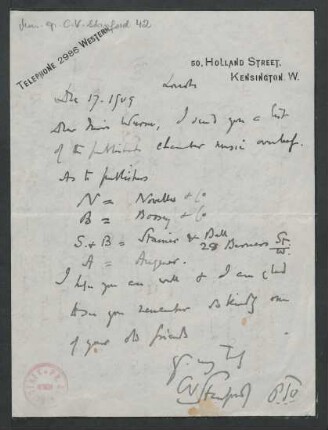 C. V. Stanford 42
TELEPHONE 2986 WESTERN.
50, HOLLAND STREET,
KENSINGTON. W.
London
Dec 17. 1909
Dear Miss Warne, I send you a list
of the published chamber music overleaf.
As to publishers
N = Novello & Co
B = Boosey & Co
S. & B = Stainer & Bell
28 Berners St
W.
A = Augener.
I hope you are well & I am glad
that you remember so kindly one
of your old friends
CV Stanford